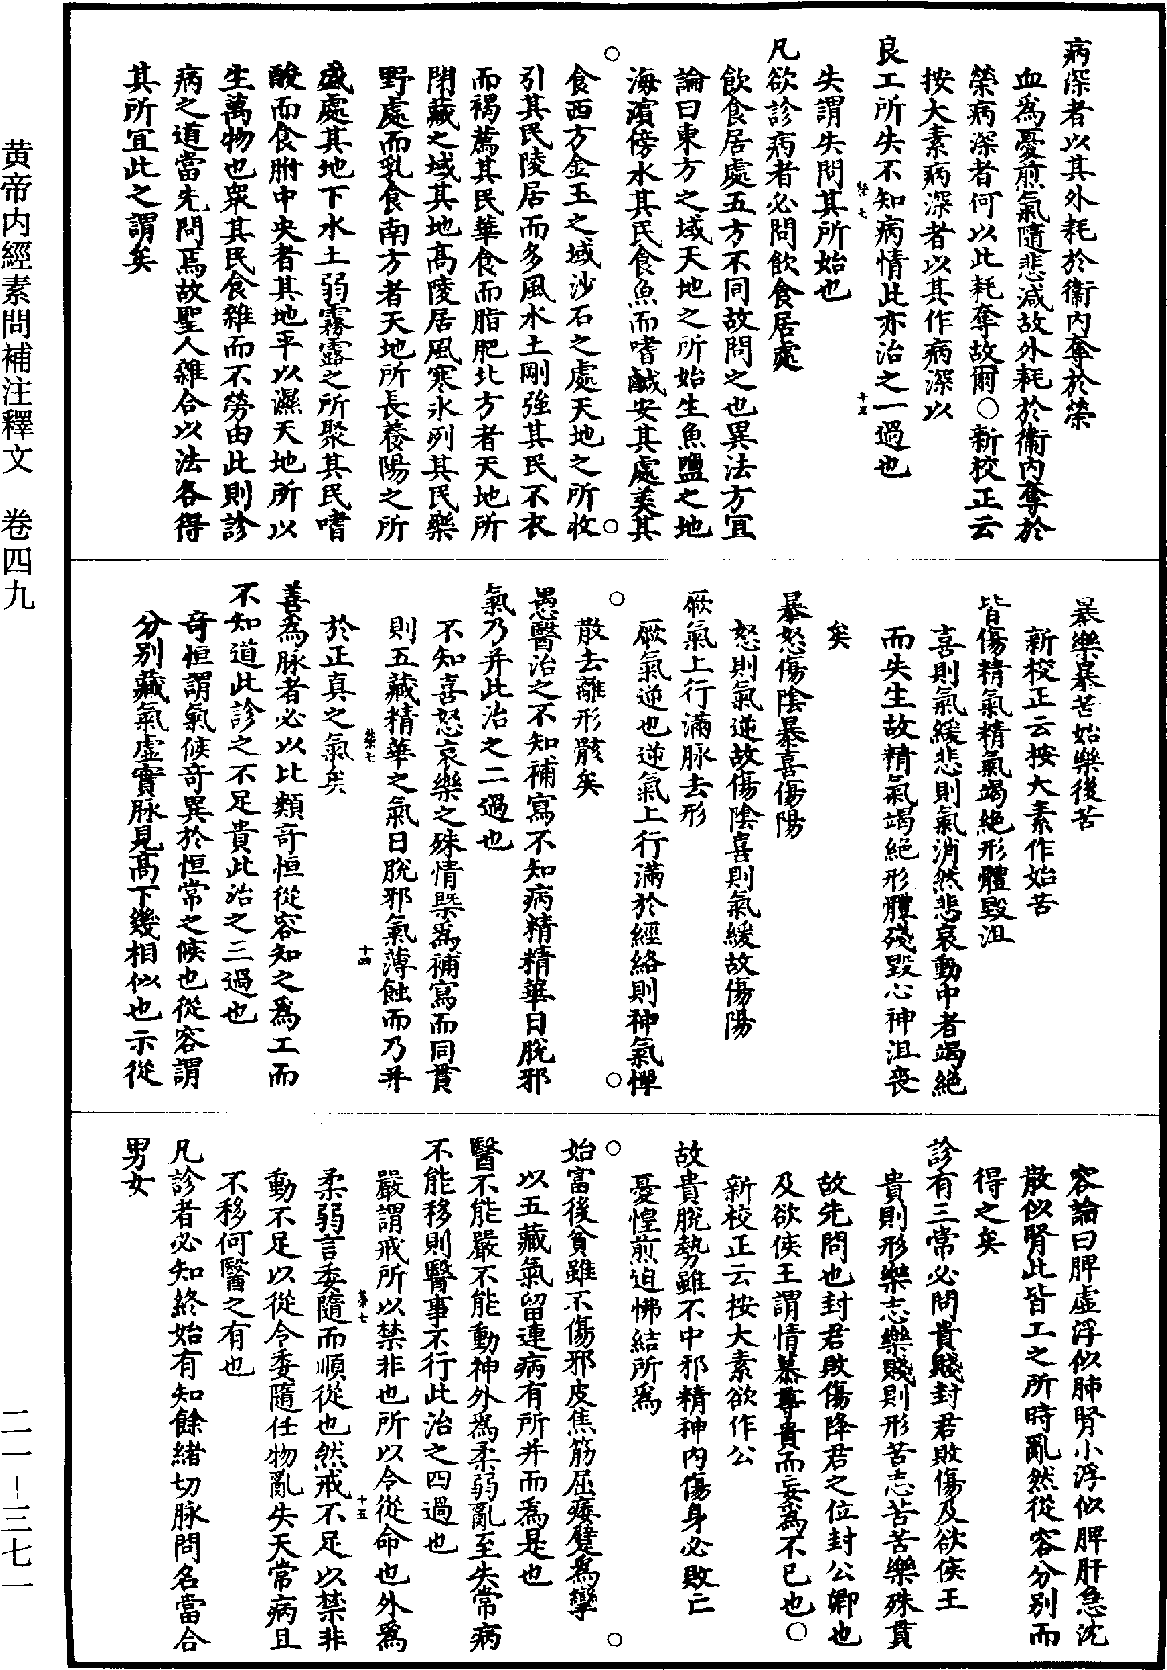 病深者以其外耗於衞內奪於榮
血為憂煎氣隨悲減故外耗於衞內奪於
榮病深者何以此耗奪故爾○新校正云
按大素病深者以其作病深以
良工所失不知病情此亦治之一過也
失謂失問其所始也
凡欲診病者必問飲食居處
飲食居處五方不同故問之也異法方宜
論曰東方之域天地之所始生魚鹽之地
海濵傍水其民食魚而嗜鹹安其處美其
食西方金玉之域沙石之處天地之所收
引其民陵居而多風水土剛強其民不衣
而褐薦其民華食而脂肥北方者天地所
閉藏之域其地高陵居風寒氷列其民樂
野處而乳食南方者天地所長養陽之所
盛處其地下水土弱霧露之所聚其民嗜
酸而食胕中央者其地平以濕天地所以
生萬物也衆其民食雜而不勞由此則診
病之道當先問焉故聖人雜合以法各得
其所宜此之謂矣
暴樂暴苦始樂後苦
新校正云按大素作始苦
皆傷精氣精氣竭絕形體毀沮
喜則氣緩悲則氣消然悲哀動中者竭絕
而失生故精氣竭絕形體殘毀心神沮喪
矣
暴怒傷陰暴喜傷陽
怒則氣逆故傷陰喜則氣緩故傷陽
厥氣上行滿脉去形
厥氣逆也逆氣上行滿於經絡則神氣憚
散去離形骸矣
愚醫治之不知補寫不知病精精華日脫邪
氣乃并此治之二過也
不知喜怒哀樂之殊情槩為補寫而同貫
則五藏精華之氣日脫邪氣薄蝕而乃并
於正真之氣矣
善為脉者必以比類奇恒從容知之為工而
不知道此診之不足貴此治之三過也
奇恒謂氣候奇異於恒常之候也從容謂
分別藏氣虛實脉見高下幾相似也示從
容論曰脾虛浮似肺腎小浮似脾肝急沈
散似腎此皆工之所時亂然從容分別而
得之矣
診有三常必問貴賤封君敗傷及欲侯王
貴則形樂志樂賤則形苦志苦苦樂殊貫
故先問也封君敗傷降君之位封公卿也
及欲侯王謂情慕尊貴而妄為不已也○
新校正云按大素欲作公
故貴脫勢雖不中邪精神內傷身必敗亡
憂惶煎迫怫結所為
始富後貧雖不傷邪皮焦筋屈痿躄為攣
以五藏氣留連病有所并而為是也
醫不能嚴不能動神外為柔弱亂至失常病
不能移則醫事不行此治之四過也
嚴謂戒所以禁非也所以令從命也外為
柔弱言委隨而順從也然戒不足以禁非
動不足以從令委隨任物亂失天常病且
不移何醫之有也
凡診者必知終始有知餘緒切脉問名當合
男女
黄帝内經素問補注釋文 卷四九
二一—三七一